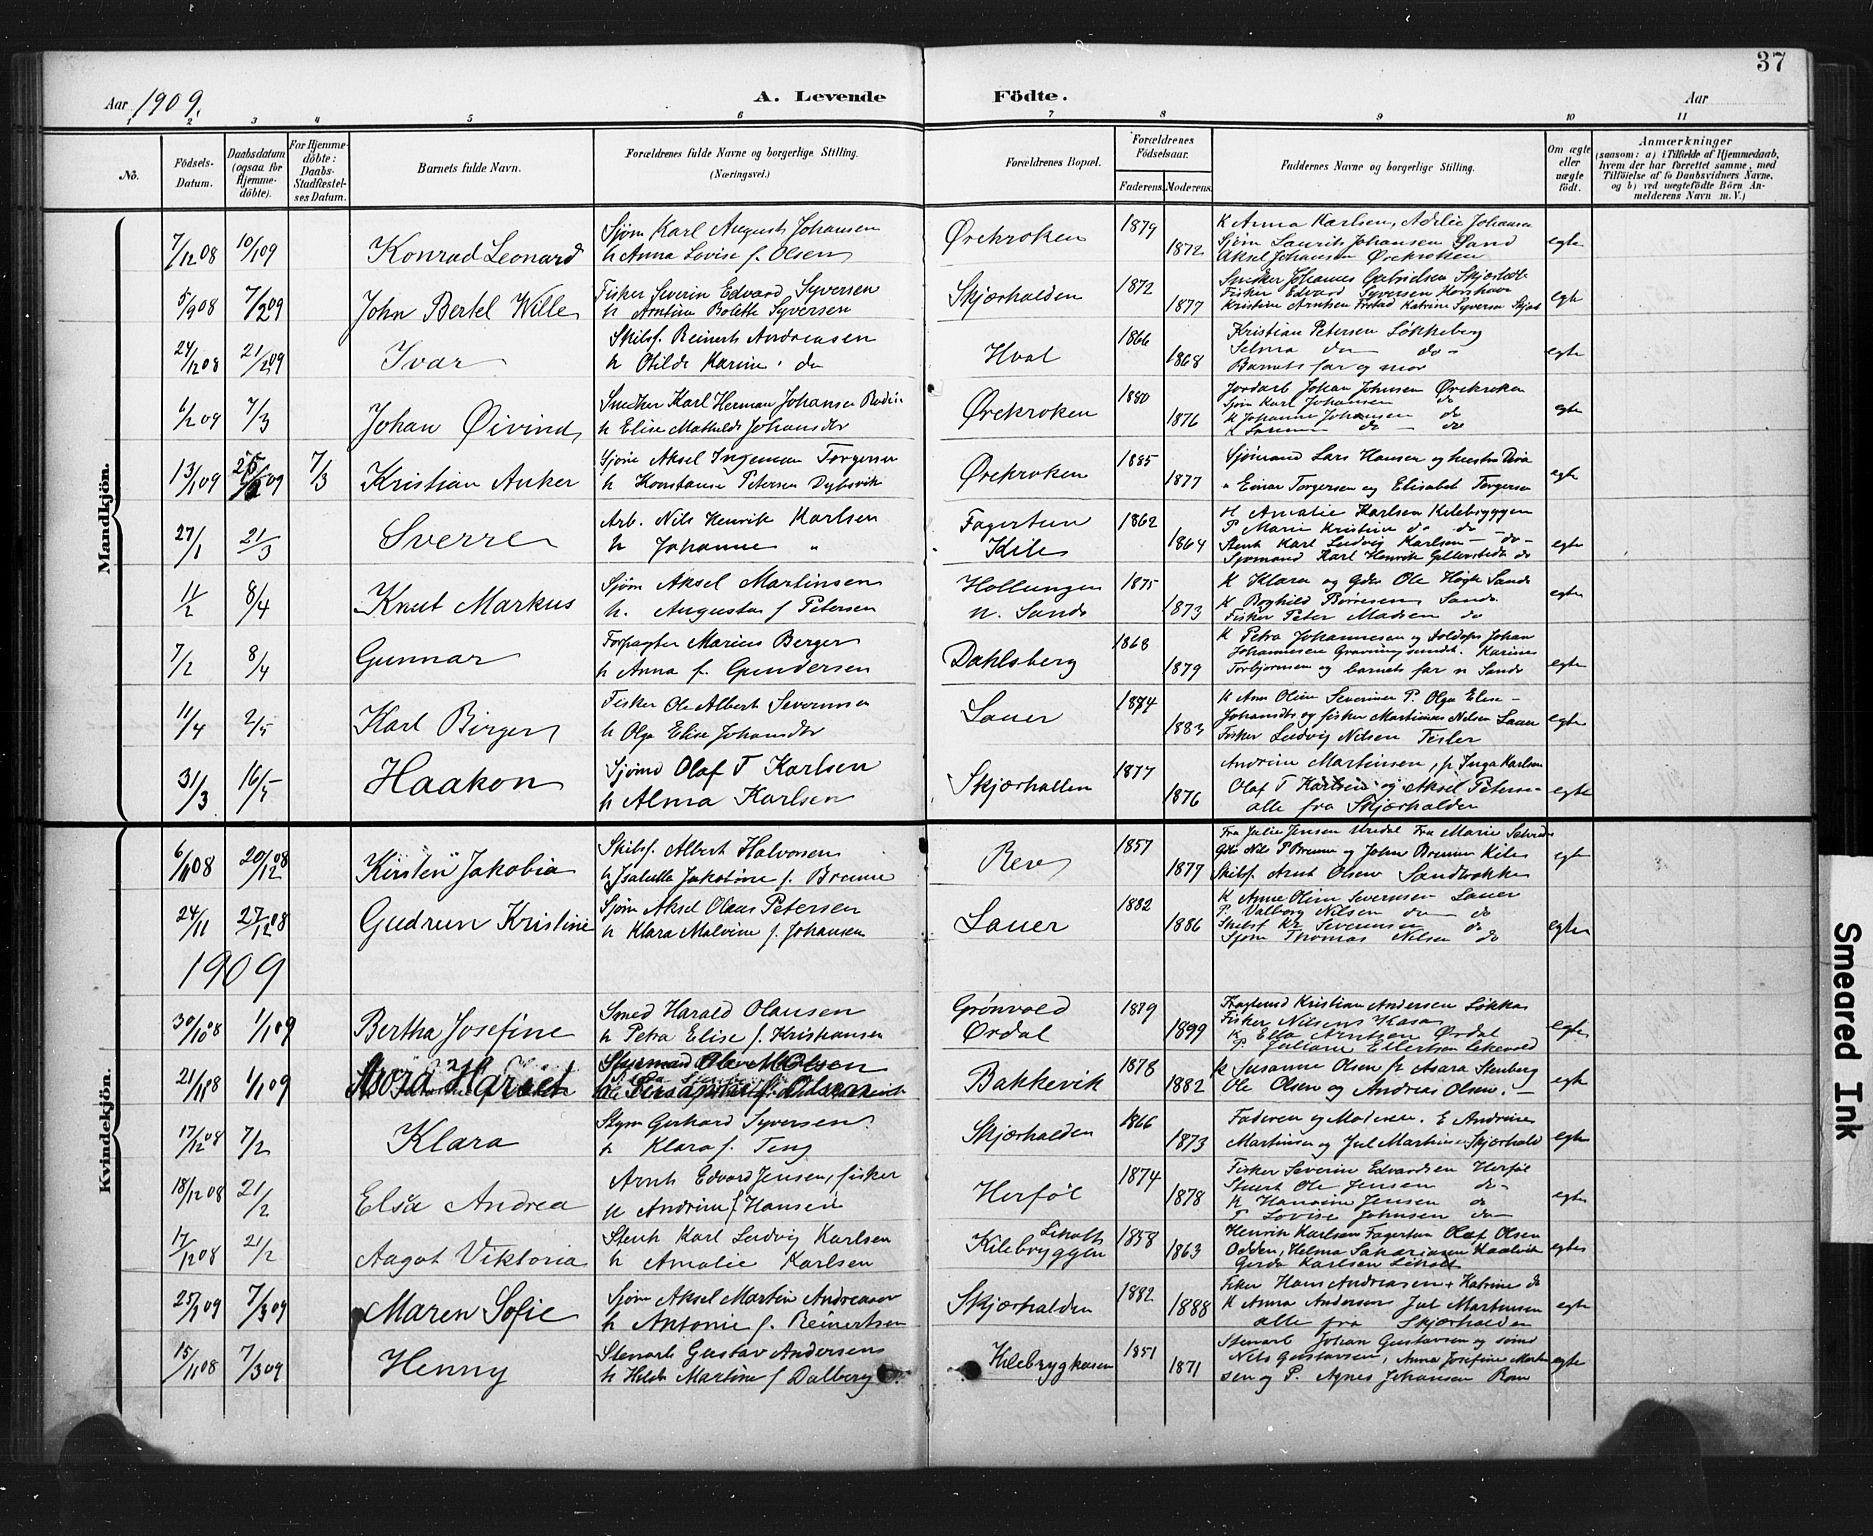 37
Aar 1909.
A. Levende Födte.
Aar
1 2 3 4 5 6 7 8 9 10 11
No.
Födsels-Datum.
Daabsdatum (ogsaa för Hjemmedöbte).
For Hjemmedöbte: Daabs-Stadfæstelses Datum.
Barnets fulde Navn.
Forældrenes fulde Navne og borgerlige Stilling.
(Næringsvei.)
Forældrenes Bopæl.
Forældrenes Födselsaar.
Faderens. Moderens.
Faddernes Navne og borgerlige Stilling.
Om ægte eller uægte födt.
Anmærkninger
(saasom: a) i Tilfælde af Hjemmedaab,
hvem der har forrettet samme, med
Tilföielse af to Daabsvidners Navne,
og b) ved uegtefödte Börn An-
melderens Navn m. V.)
Mandkjön.
7/12 08 10/1 09 Konrad Leonard
Sjøm Karl August Johansen
h Anna Lovise f. Olsen
Ørekroken 1879 1872
K Anna Karlsen, Adelie Johansen
Sjøm Laurits Johansen Sand
Aksel Johansen Ørekroken
egte
5/9 08 7/2 09 John Bertel Wille
Fisker Severin Edvard Syversen
h Arntine Bolette Syversen
Skjærhalden 1872 1877
Snedker Johannes Gabrielsen
Fisker Edvard Syversen
Kristine Arntsen Katrine Syversen
egte
24/12 08 21/2 09 Ivar
Skilsf. Reinert Andreasen
h Otilde Karine do
Hval 1866 1868
Kristian Petersen Løkkeberg
Selma do do
Barnets far og mor
egte
6/2 09 7/3 Johan Øivind
Snedker Karl Herman Johansen
h Elise Mathilde Johansdtr
Ørekroken 1880 1876
Jordarb Johan Johnsen Ørekroken
Sjøm Karl Johansen do
K Johanne Johansen do
egte
13/1 09 7/3 Kristian Anker
Sjøm Aksel Ingeman Torgersen
h Konstanse Petersen Dybsvik
Ørekroken 1885 1877
Sjømand Lars Hansen og hustru
" Einar Torgersen og Elisabet Torgersen
egte
27/1 21/3 Sverre
Arb. Nils Henrik Karlsen
h Johanne "
Fagertun
Kile 1862 1864
H Amalie Karlsen Kilebryggen
P Marie Kristine do do
Stenh Karl Ludvig Karlsen do
Sjømand Karl Henrik do
egte
11/2 8/4 Knut Markus
Sjøm Aksel Martinsen
h. Augusta f Petersen
Hollungen
n. Sande 1875 1873
K Klara og Gdr Ole Høgh Sande
K Borghild Børresen Sande
Fisker Peter Madsen do
egte
7/2 8/4 Gunnar
Forpagter Marius Berger
h Anna f. Gundersen
Dahlsberg 1868 1879
K Petra Johannesen og Johan
Johannesen Karine
Torbjørnsen og barnets far n Sande
egte
11/4 2/5 Karl Birger
Fisker Ole Albert Severinsen
h Olga Elise Johansdtr
Lauer 1884 1883
K Ane Oline Severinsen P. Olga Elise
Johansdtr og fisker Martinus Nilsen Lauer
Fisker Ludvig Nilsen Tisler
egte
31/3 16/5 Haakon
Sjømd Olaf T Karlsen
h Alma Karlsen
Skjærhallen 1877 1876
Andrine Martinsen, p Inga Karlsen
Olaf T Karlsen og Aksel Petersen
alle fra Skjærhalden
egte
Kvindekjön.
6/11 08 20/12 08 Kirsten Jakobia
Skilsf. Albert Halvorsen
h Isabella Jakobine f. Breune
Rev 1857 1877
Fru Julie Jensen Fru Marie
Gdr Nils P Breune og John Breune Kile
Skilsf. Arnt Olsen Sandbrække
egte
24/11 27/12 08 Gudrun Kristine
Sjøm Aksel Olaus Petersen
h Klara Malvine f. Johansen
Lauer 1882 1886
K Anne Oline Severinsen Lauer
P. Valborg Nilsen do do
Skilsf Kr Severinsen do
Sjøm Thomas Nilsen do
egte
1909
30/10 08 1/1 09 Bertha Josefine
Smed Harald Olausen
h Petra Elise f. Kristiansen
Grønvold
Ørdal 1879 1899
Kristian Andersen Løkka
Fisker Nilsen Kasa
K Ella Arntsen Ørdal
P. Juliane Ellertsen
egte
21/11 08 1/1 09 Harriet
Styrmand
Bakkevik 1878 1882
K Susanne Olsen p Asara Stenberg
Ole Olsen og Andreas Olsen.
egte
17/12 08 7/2 Klara
Styrm Gerhard Syversen
h Klara f. Teng
Skjærhalden 1866 1873
Faderen og Moderen. E Andrine
Martinsen og Jul Martinsen Skjærhald
egte
18/12 08 21/2 Elsa Andrea
Arnt Edvard Jensen, fisker
h Andrine f Hansen
Herføl 1874 1878
Fisker Severin Edvardsen Herføl
Stuert Ole Jensen do
K Hansine Jensen do
P Lovise Johnsen do
egte
17/12 08 21/2 Aagot Viktoria
Stenh Karl Ludvig Karlsen
h Amalie Karlsen
Liholt
Kilebryggen 1858 1863
Henrik Karlsen Fagertun Olaf Olsen
Odden, Helma Sakariasen
Gerda Karlsen Liholt
egte
25/1 09 7/3 09 Maren Sofie
Sjøm Aksel Martin Andreasen
h Antonie f. Reinertsen
Skjærhalden 1882 1888
Fisker Hans Andreasen + Katrine do
K Anna Andersen Jul Martinsen
alle fra Skjærhalden
egte
15/11 08 7/3 09 Henny
Stenarb Gustav Andersen
h Hilda Martine f Dalberg
Kilebrygkasen 1851 1871
Stenarb Johan Gustavsen og svend
Nils Gustavsen, Anna Josefine Martin
sen og P. Agnes Johansen Rom
egte
Smeared Ink